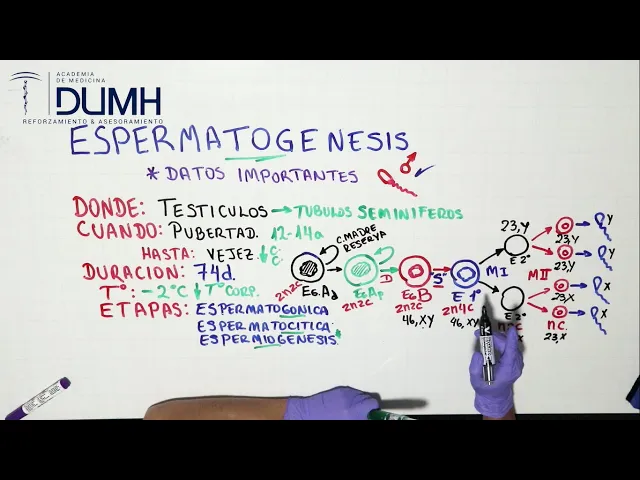 ACADEMIA
DE MEDICINA
DUMH
REFORZAMIENTO & ASESORAMIENTO
ESPERMATOGENESIS
* DATOS IMPORTANTES
DONDE: TESTICULOS → TUBULOS SEMINIFEROS
CUANDO: PUBERTAD. 12-14a
HASTA: VEJEZ ↓ C.
C.
DURACION: 74d.
T°: -2°C ↓ T° CORP.
ETAPAS: ESPERMATOGONICA
ESPERMATOCITICA
ESPERMIOGENESIS
C. MADRE
RESERVA
EG.Ad
2n2c
EG.Ap
2n2c
D
EGB
2n2c
46, XY
"S"
E 1°
2n4c
46, XY
MI
23,Y
E 2°
E 2°
n2c
X
MII
23,Y
Y
23,Y
Y
23,X
X
nc.
23,X
X